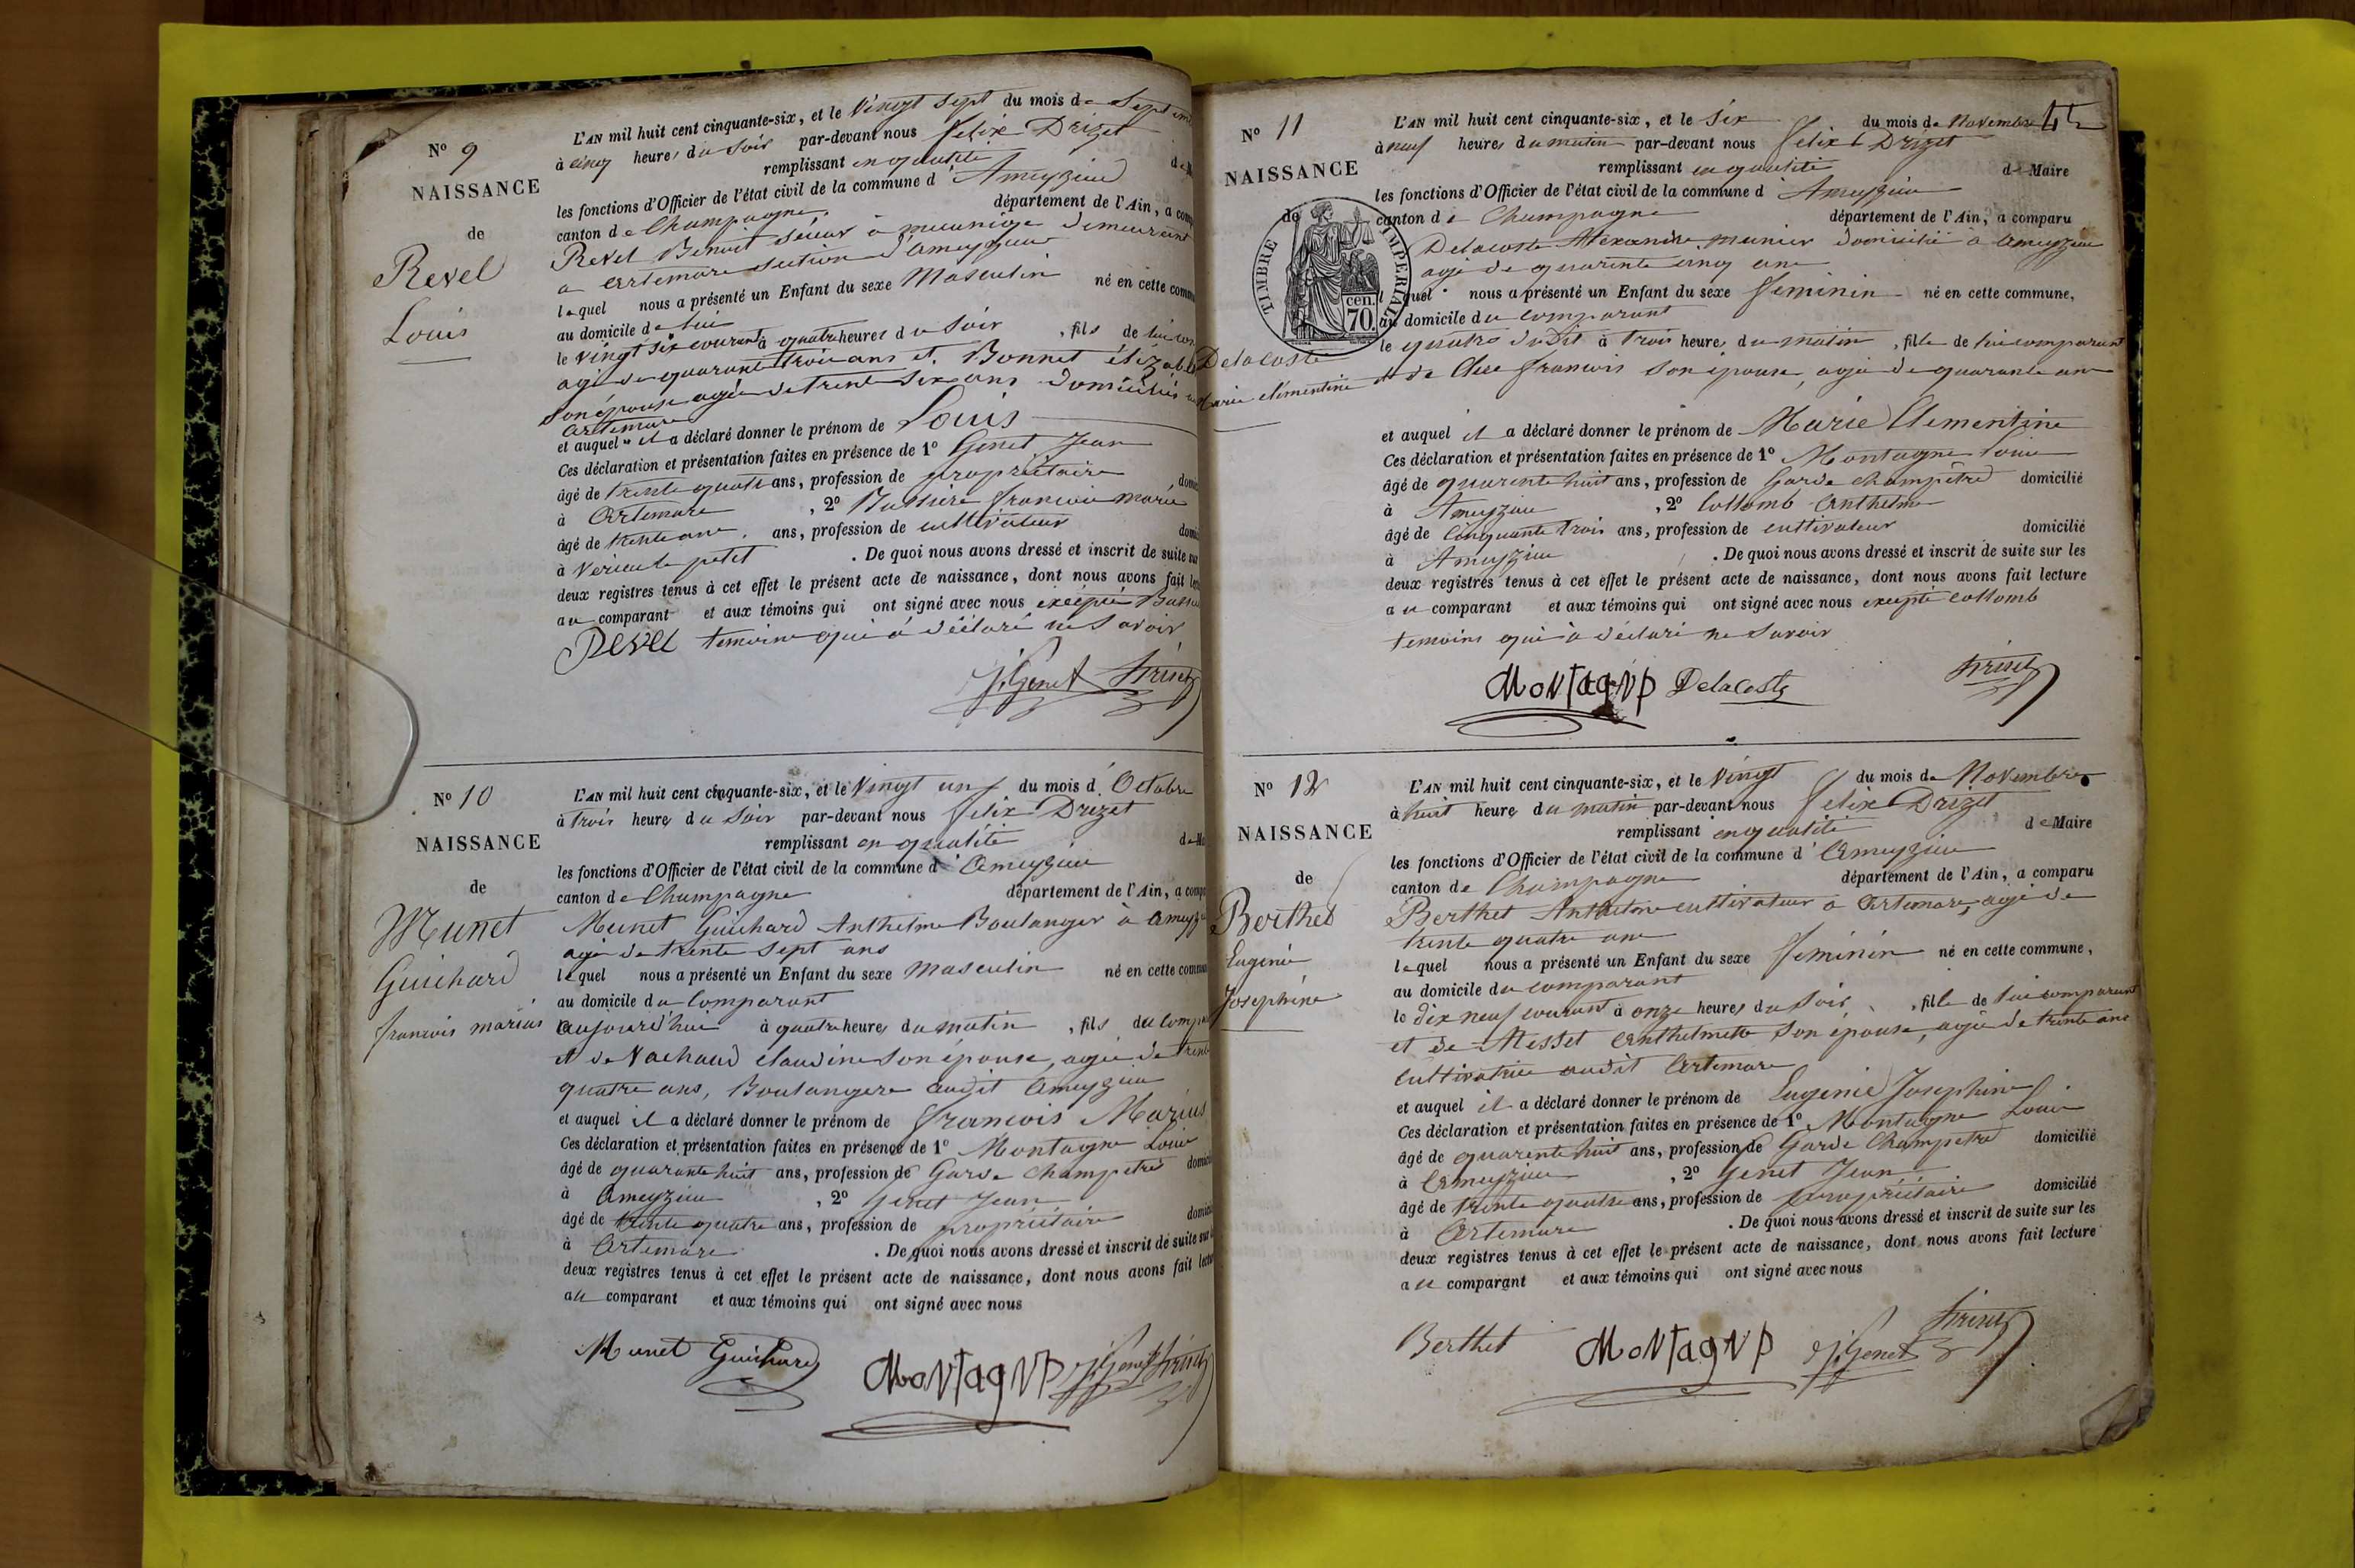 N° 9
NAISSANCE
de
Revel
Louis
L'AN mil huit cent cinquante-six, et le Vingt sept du mois de Septem
à cinq heures du soir par-devant nous felix Drizet
remplissant en qualité de M
les fonctions d'Officier de l'état civil de la commune d' Ameyzieu
canton de Champagne département de l'Ain, a comp
Revel Benoit à demeurant
a artemare section d'ameyzieu
lequel nous a présenté un Enfant du sexe Masculin né en cette comm
au domicile de lui
le vingt six courant à quatre heures du soir, fils de lui com
agé de quarante trois ans et Bonnet
son épouse agée de trente six ans domiciliés
artemare
et auquel il a déclaré donner le prénom de Louis
Ces déclaration et présentation faites en présence de 1° Genet Jean
âgé de trente quatre ans, profession de propriétaire domic
à Artemare, 2° francois marie
âgé de trente ans, profession de cultivateur domic
à petit. De quoi nous avons dressé et inscrit de suite sur
deux registres tenus à cet effet le présent acte de naissance, dont nous avons fait lec
au comparant et aux témoins qui ont signé avec nous excepté
Revel temoin qui à déclaré ne savoir
J. Genet Drizet
N° 10
NAISSANCE
de
Munet
Guichard
francois marius
L'AN mil huit cent cinquante-six, et le Vingt un du mois d'Octobre
à trois heures du soir par-devant nous felix Drizet
remplissant en qualité de M
les fonctions d'Officier de l'état civil de la commune d' Ameyzieu
canton de Champagne département de l'Ain, a comp
Munet Guichard Anthelme Boulanger à ameyz
agé de trente sept ans
lequel nous a présenté un Enfant du sexe masculin né en cette commu
au domicile du comparant
aujourd'hui à quatre heures du matin, fils du compa
et de Vachaud claudine son épouse, agée de trente
quatre ans, Boulangere audit ameyzieu
et auquel il a déclaré donner le prénom de francois Marius
Ces déclaration et présentation faites en présence de 1° Montagne Louis
âgé de quarante huit ans, profession de Garde Champetre domici
à ameyzieu, 2° Genet Jean
âgé de trente quatre ans, profession de propriétaire domici
à Artemare. De quoi nous avons dressé et inscrit de suite sur
deux registres tenus à cet effet le présent acte de naissance, dont nous avons fait lectu
au comparant et aux témoins qui ont signé avec nous
Munet Guichard Montagne J. Genet Drizet
45
N° 11
NAISSANCE
de
TIMBRE IMPERIAL
70 cen.
Delacoste
Marie clémentine
L'AN mil huit cent cinquante-six, et le six du mois de Novembre
à neuf heures du matin par-devant nous felix Drizet
remplissant en qualité de Maire
les fonctions d'Officier de l'état civil de la commune d' Ameyzieu
canton de Champagne département de l'Ain, a comparu
Delacoste Alexandre munier domicilié à ameyzieu
agé de quarente cinq ans
lequel nous a présenté un Enfant du sexe feminin né en cette commune,
au domicile du comparant
le quatre dudit à trois heures du matin, fille de lui comparant
et de francois son épouse, agée de quarante ans
et auquel il a déclaré donner le prénom de Marie Clementine
Ces déclaration et présentation faites en présence de 1° Montagne louis
âgé de quarente huit ans, profession de Garde champêtre domicilié
à Ameyzieu, 2° Collomb Anthelme
âgé de cinquante trois ans, profession de cultivateur domicilié
à Ameyzieu. De quoi nous avons dressé et inscrit de suite sur les
deux registres tenus à cet effet le présent acte de naissance, dont nous avons fait lecture
au comparant et aux témoins qui ont signé avec nous excepté collomb
temoins qui à déclaré ne savoir
Montagne Delacoste Drizet
N° 12
NAISSANCE
de
Berthet
Eugenie
Josephine
L'AN mil huit cent cinquante-six, et le Vingt du mois de Novembre
à huit heures du matin par-devant nous felix Drizet
remplissant en qualité de Maire
les fonctions d'Officier de l'état civil de la commune d' ameyzieu
canton de Champagne département de l'Ain, a comparu
Berthet Anthelme cultivateur à Artemare, agé de
trente quatre ans
lequel nous a présenté un Enfant du sexe feminin né en cette commune,
au domicile du comparant
le dix neuf courant à onze heures du soir, fille de lui comparant
et de Messet Anthelmette son épouse, agée de trente ans
cultivatrice audit Artemare
et auquel il a déclaré donner le prénom de Eugenie Josephine
Ces déclaration et présentation faites en présence de 1° Montagne Louis
âgé de quarente huit ans, profession de Garde Champetre domicilié
à Ameyzieu, 2° Genet Jean
âgé de trente quatre ans, profession de propriétaire domicilié
à Artemare. De quoi nous avons dressé et inscrit de suite sur les
deux registres tenus à cet effet le présent acte de naissance, dont nous avons fait lecture
au comparant et aux témoins qui ont signé avec nous
Berthet Montagne J. Genet Drizet